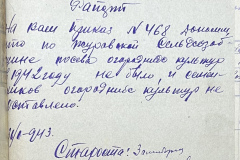 Рапорт
На Ваш Приказ №468 Доношу
что по Журавской Сельхозоб
щине посева огородніх культур
1942 году не было, и семен
ников огородніх культур не
оставлено.
943.
Староста: